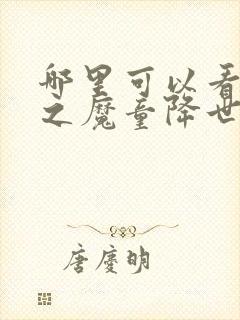 哪里可以看
之魔童降世
唐庆明